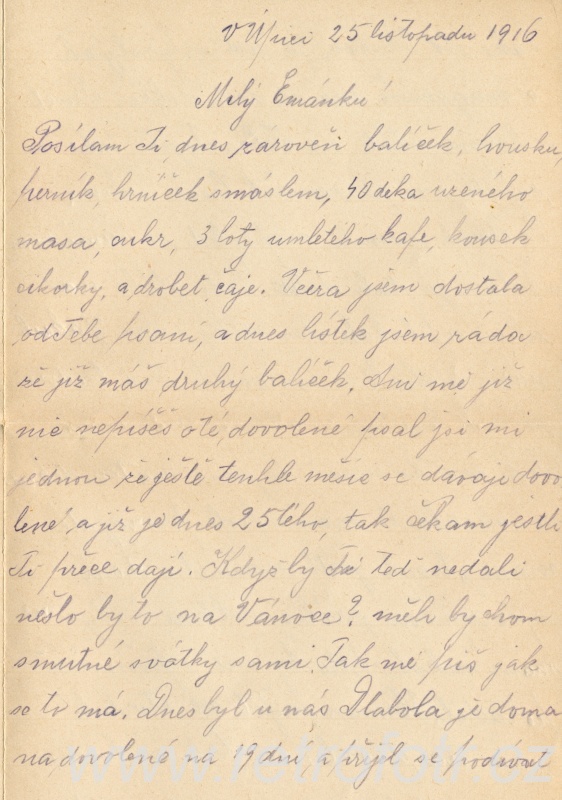 v Úpici 25 listopadu 1916
Milý Emánku!
Posílam Ti dnes zároveň balíček, housku,
perník, hrníček smáslem, 40 deka uzeného
masa, cukr, 3 loty umletého kafe, kousek
cikorky, a drobet čaje. Včera jsem dostala
od Tebe psaní, a dnes lístek jsem ráda
že již máš druhý balíček. Ani mě již
nic nepíšeš oté dovolené psal jsi mi
jednou že ještě tenhle měsíc se dávají dovo
lené a již je dnes 25 tého, tak čekam jestli
Ti přece dají. Když by Tě teď nedali
nešlo by to na Vánoce? měli by chom
smutné svátky sami. Tak mě piš jak
se to má. Dnes byl u nás Dlabola je doma
na dovolené na 19 dní, a přijel se podívat
www.retrofotr.cz